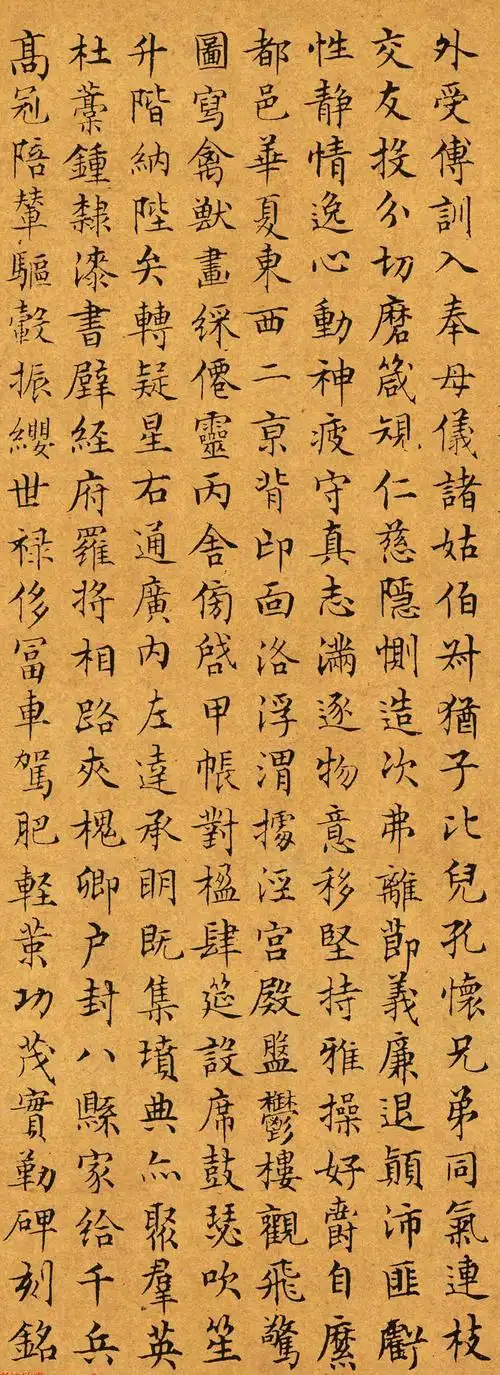 外受傅訓入奉母儀諸姑伯叔猶子比兒孔懷兄弟同氣連枝
交友投分切磨箴規仁慈隱惻造次弗離節義廉退顛沛匪虧
性静情逸心動神疲守真志滿逐物意移堅持雅操好爵自縻
都邑華夏東西二亰背邙面洛浮渭據淫宮殿盤欝樓觀飛驚
圖寫禽獸畫綵僊靈丙舍傍啓甲帳對楹肆筵設席鼓瑟吹笙
升階納陛弁轉疑星右通廣内左達承明既集墳典亦聚羣英
杜藁鍾隸漆書壁経府羅將相路夾槐卿户封八縣家給千兵
髙冠陪輦驅轂振纓世禄侈冨車駕肥軽策功茂實勒碑刻銘